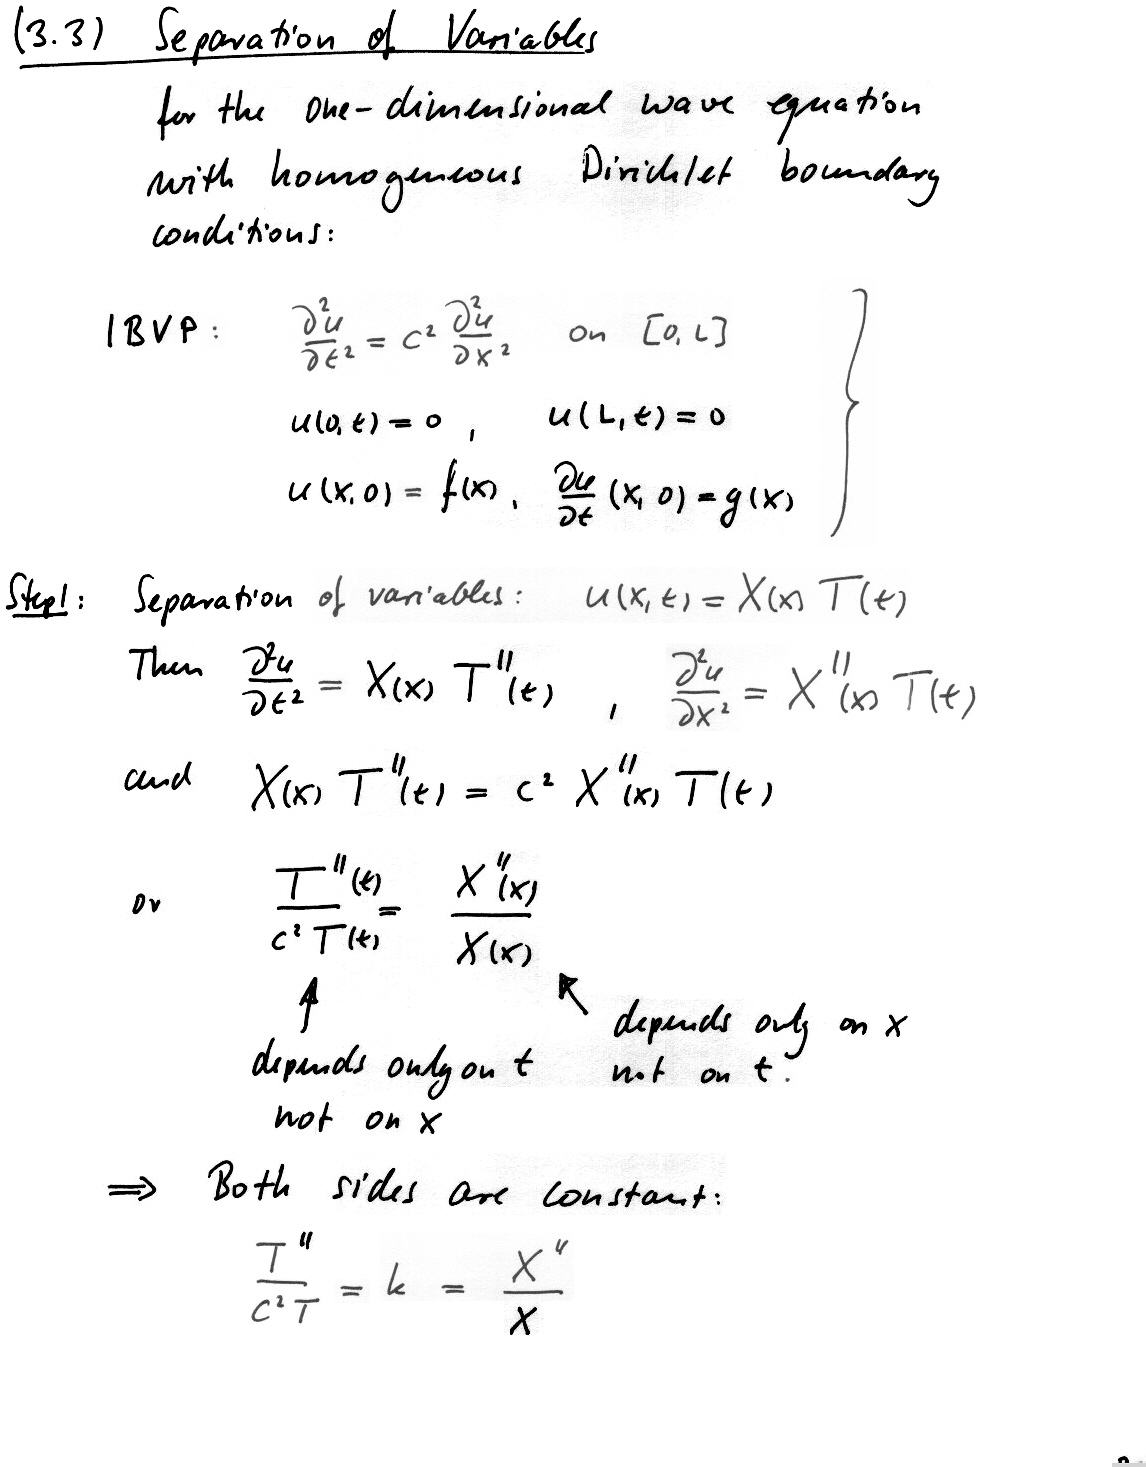 (3.3) Separation of Variables
for the one-dimensional wave equation
with homogeneous Dirichlet boundary
conditions:
IBVP: ∂²u/∂t² = c² ∂²u/∂x² on [0, L]
u(0, t) = 0 , u(L, t) = 0
u(x, 0) = f(x), ∂u/∂t (x, 0) = g(x)
Step 1: Separation of variables: u(x, t) = X(x) T(t)
Then ∂²u/∂t² = X(x) T''(t) , ∂²u/∂x² = X''(x) T(t)
and X(x) T''(t) = c² X''(x) T(t)
or T''(t)/c² T(t) = X''(x)/X(x)
depends only on t
not on x
depends only on x
not on t.
⇒ Both sides are constant:
T''/c² T = k = X''/X